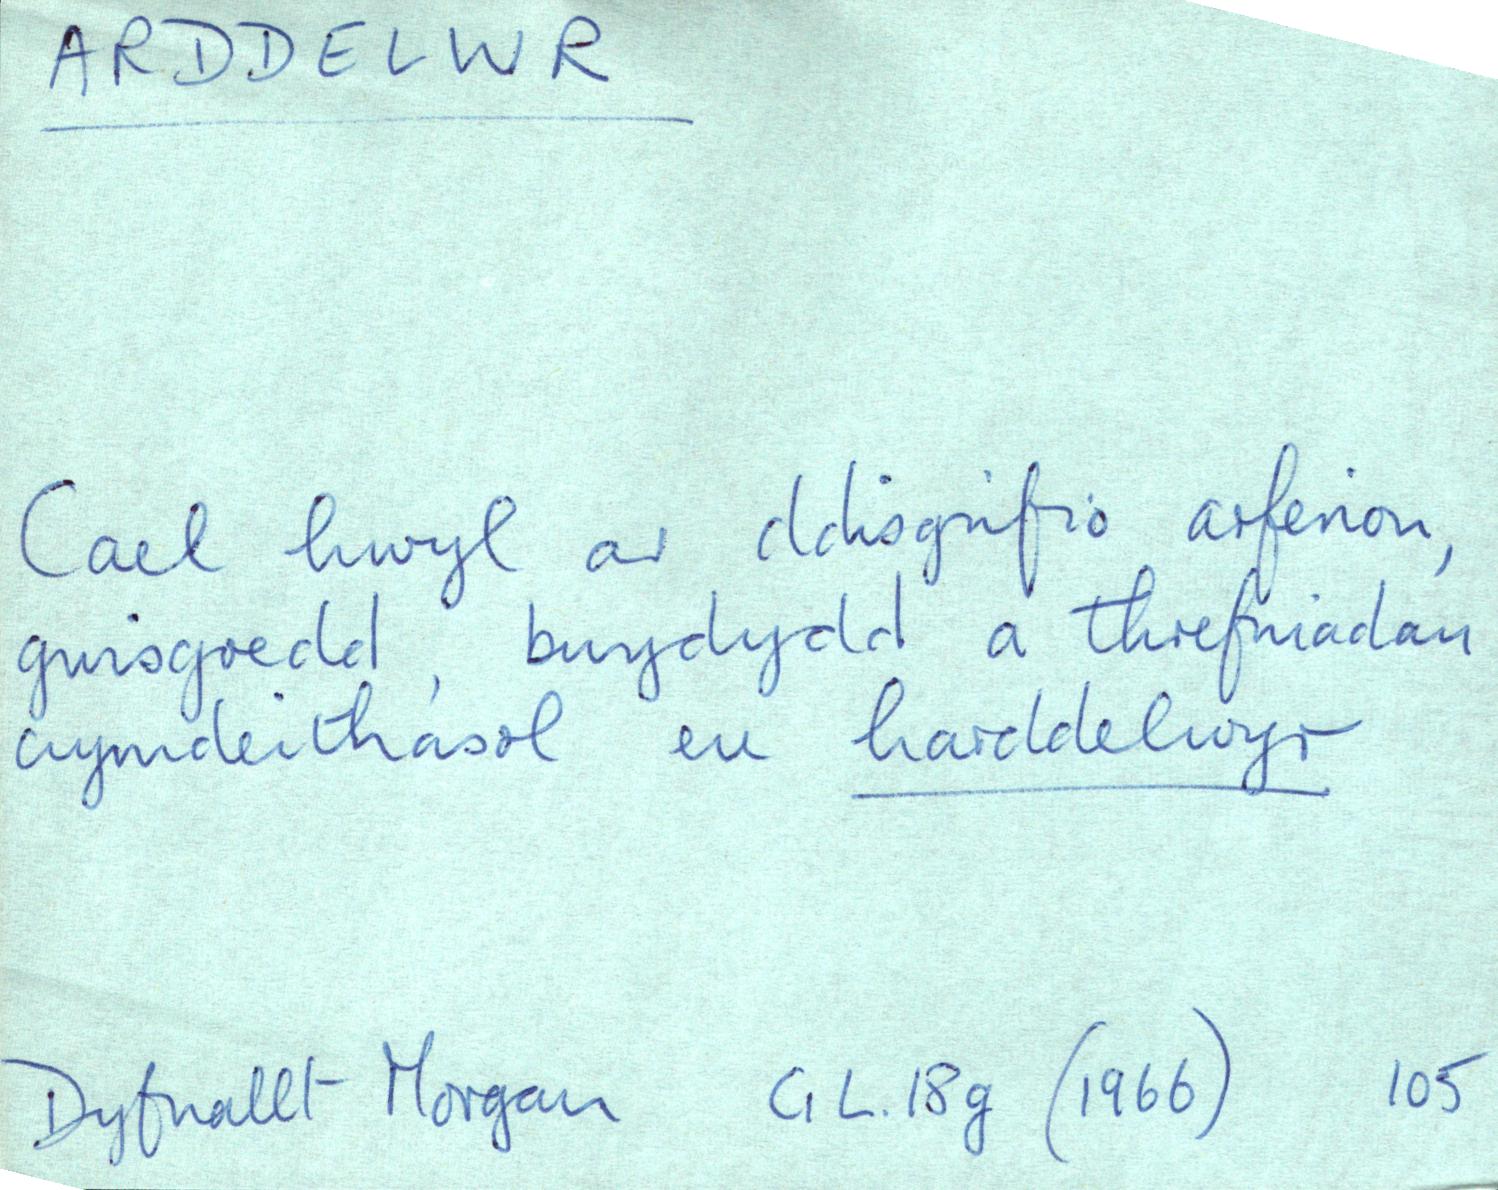 ARDDELWR
Cael hwyl ar ddisgrifio arferion,
gwisgoedd, bwydydd a threfniadau
cymdeithasol eu harddelwyr
Dyfnallt Morgan G L. 18g (1966) 105